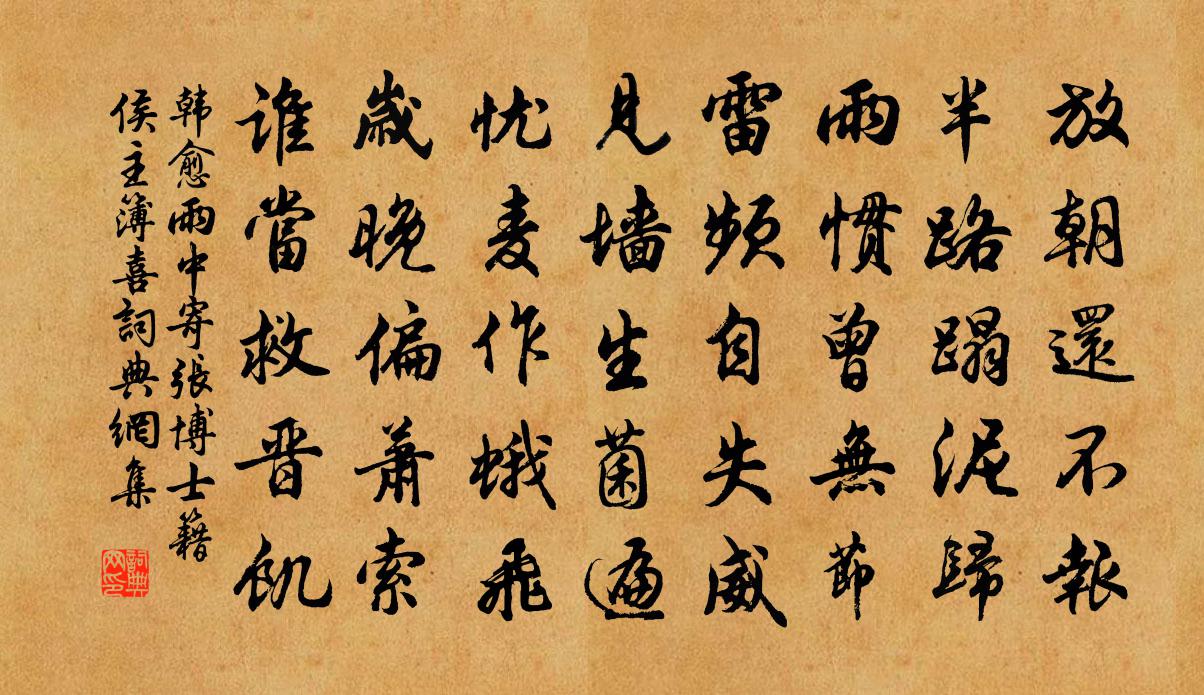 放朝還不報
半路蹋泥歸
雨慣曾無節
雷頻自失威
見墙生菌遍
忧麦作蛾飛
歲晚偏蕭索
誰當救晋飢
韩愈雨中寄張博士籍
侯主簿喜詞典網集
詞典网印